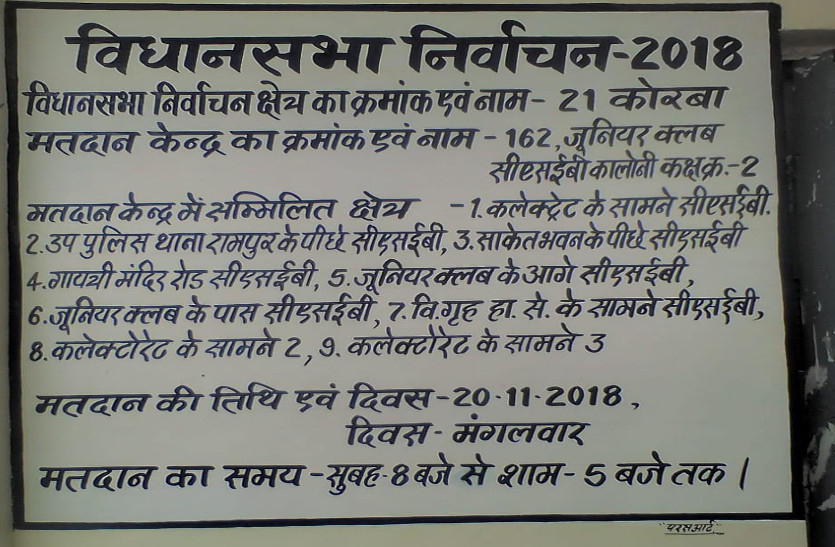 विधानसभा निर्वाचन-2018
विधानसभा निर्वाचन क्षेत्र का क्रमांक एवं नाम - 21 कोरबा
मतदान केन्द्र का क्रमांक एवं नाम - 162, जूनियर क्लब
सीएसईबी कालोनी कक्ष क्र.-2
मतदान केन्द्र में सम्मिलित क्षेत्र - 1. कलेक्ट्रेट के सामने सीएसईबी.
2. उप पुलिस थाना रामपुर के पीछे सीएसईबी, 3. साकेत भवन के पीछे सीएसईबी
4. गायत्री मंदिर रोड सीएसईबी, 5. जूनियर क्लब के आगे सीएसईबी,
6. जूनियर क्लब के पास सीएसईबी, 7. वि.गृह हा. से. के सामने सीएसईबी,
8. कलेक्टोरेट के सामने 2, 9. कलेक्टोरेट के सामने 3
मतदान की तिथि एवं दिवस-20-11-2018,
दिवस- मंगलवार
मतदान का समय - सुबह-8 बजे से शाम- 5 बजे तक |
परसआर्ट